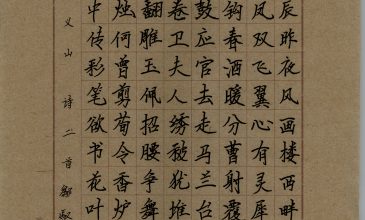 辰昨夜风画楼西畔
凤双飞翼心有灵犀
钩春酒暖分曹射覆
鼓应官去走马兰台
卷卫夫人绣被犹堆
翻雕玉佩招腰争舞
烛何曾剪荀令香炉
中传彩笔欲书花叶
义山诗二首